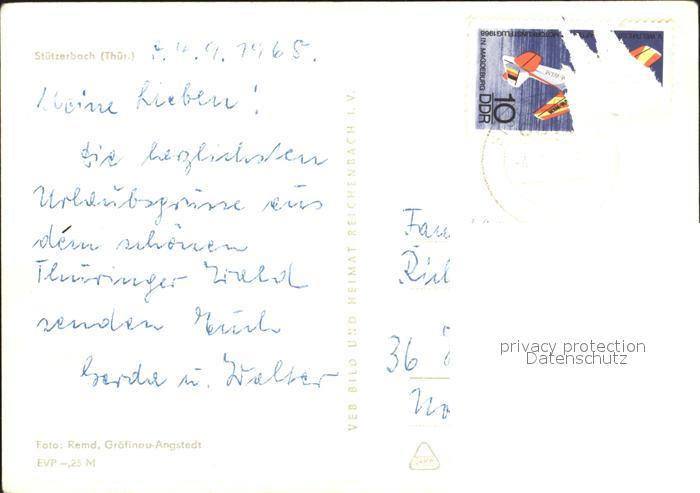 Stützerbach (Thür.)
4.9.1968.
Meine Lieben!
Die herzlichsten
Urlaubsgrüsse aus
dem schönen
Thüringer Wald
senden Euch
Gerda u. Walter
Foto: Remd, Gräfinau-Angstedt
EVP -,25 M
VEB BILD UND HEIMAT REICHENBACH I. V.
MOTORKUNSTFLUG 1968
IN MAGDEBURG
DDR
10
Fam
36
privacy protection
Datenschutz